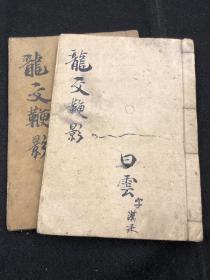 龍文鞭影
龍文鞭影
白雲
字